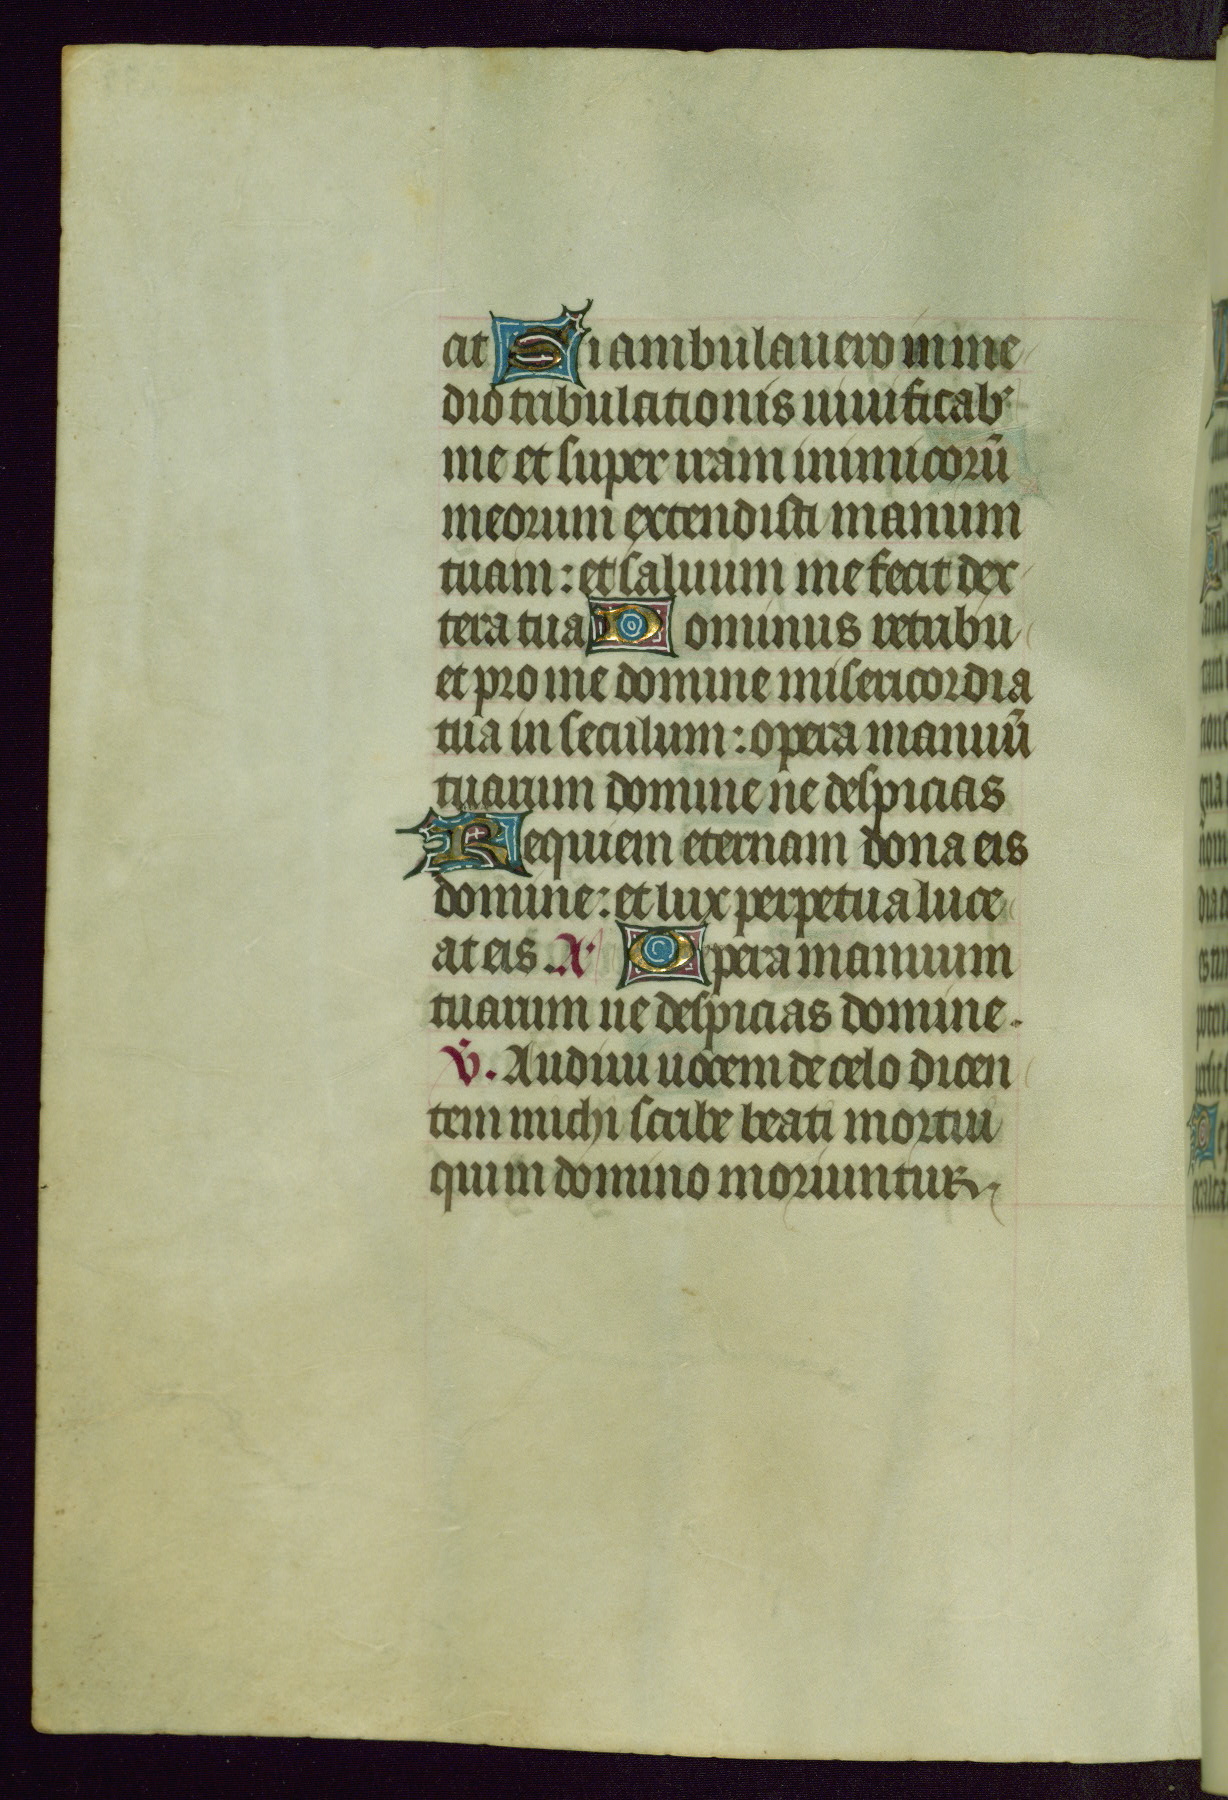 cit Si ambulauero in me
dio tribulationis uiuificab̾
me et super iram inimicorū
meorum extendisti manum
tuam: et saluum me fecit dex
tera tua Dominus retribu
et pro me domine misericordia
tua in seculum: opera manuū
tuarum domine ne despicias
Requiem eternam dona eis
domine: et lux perpetua luce
at eis. A̾ Opera manuum
tuarum ne despicias domine.
V̄. Audiui uocem de celo dicen
tem michi scribe beati mortui
qui in domino moriuntur